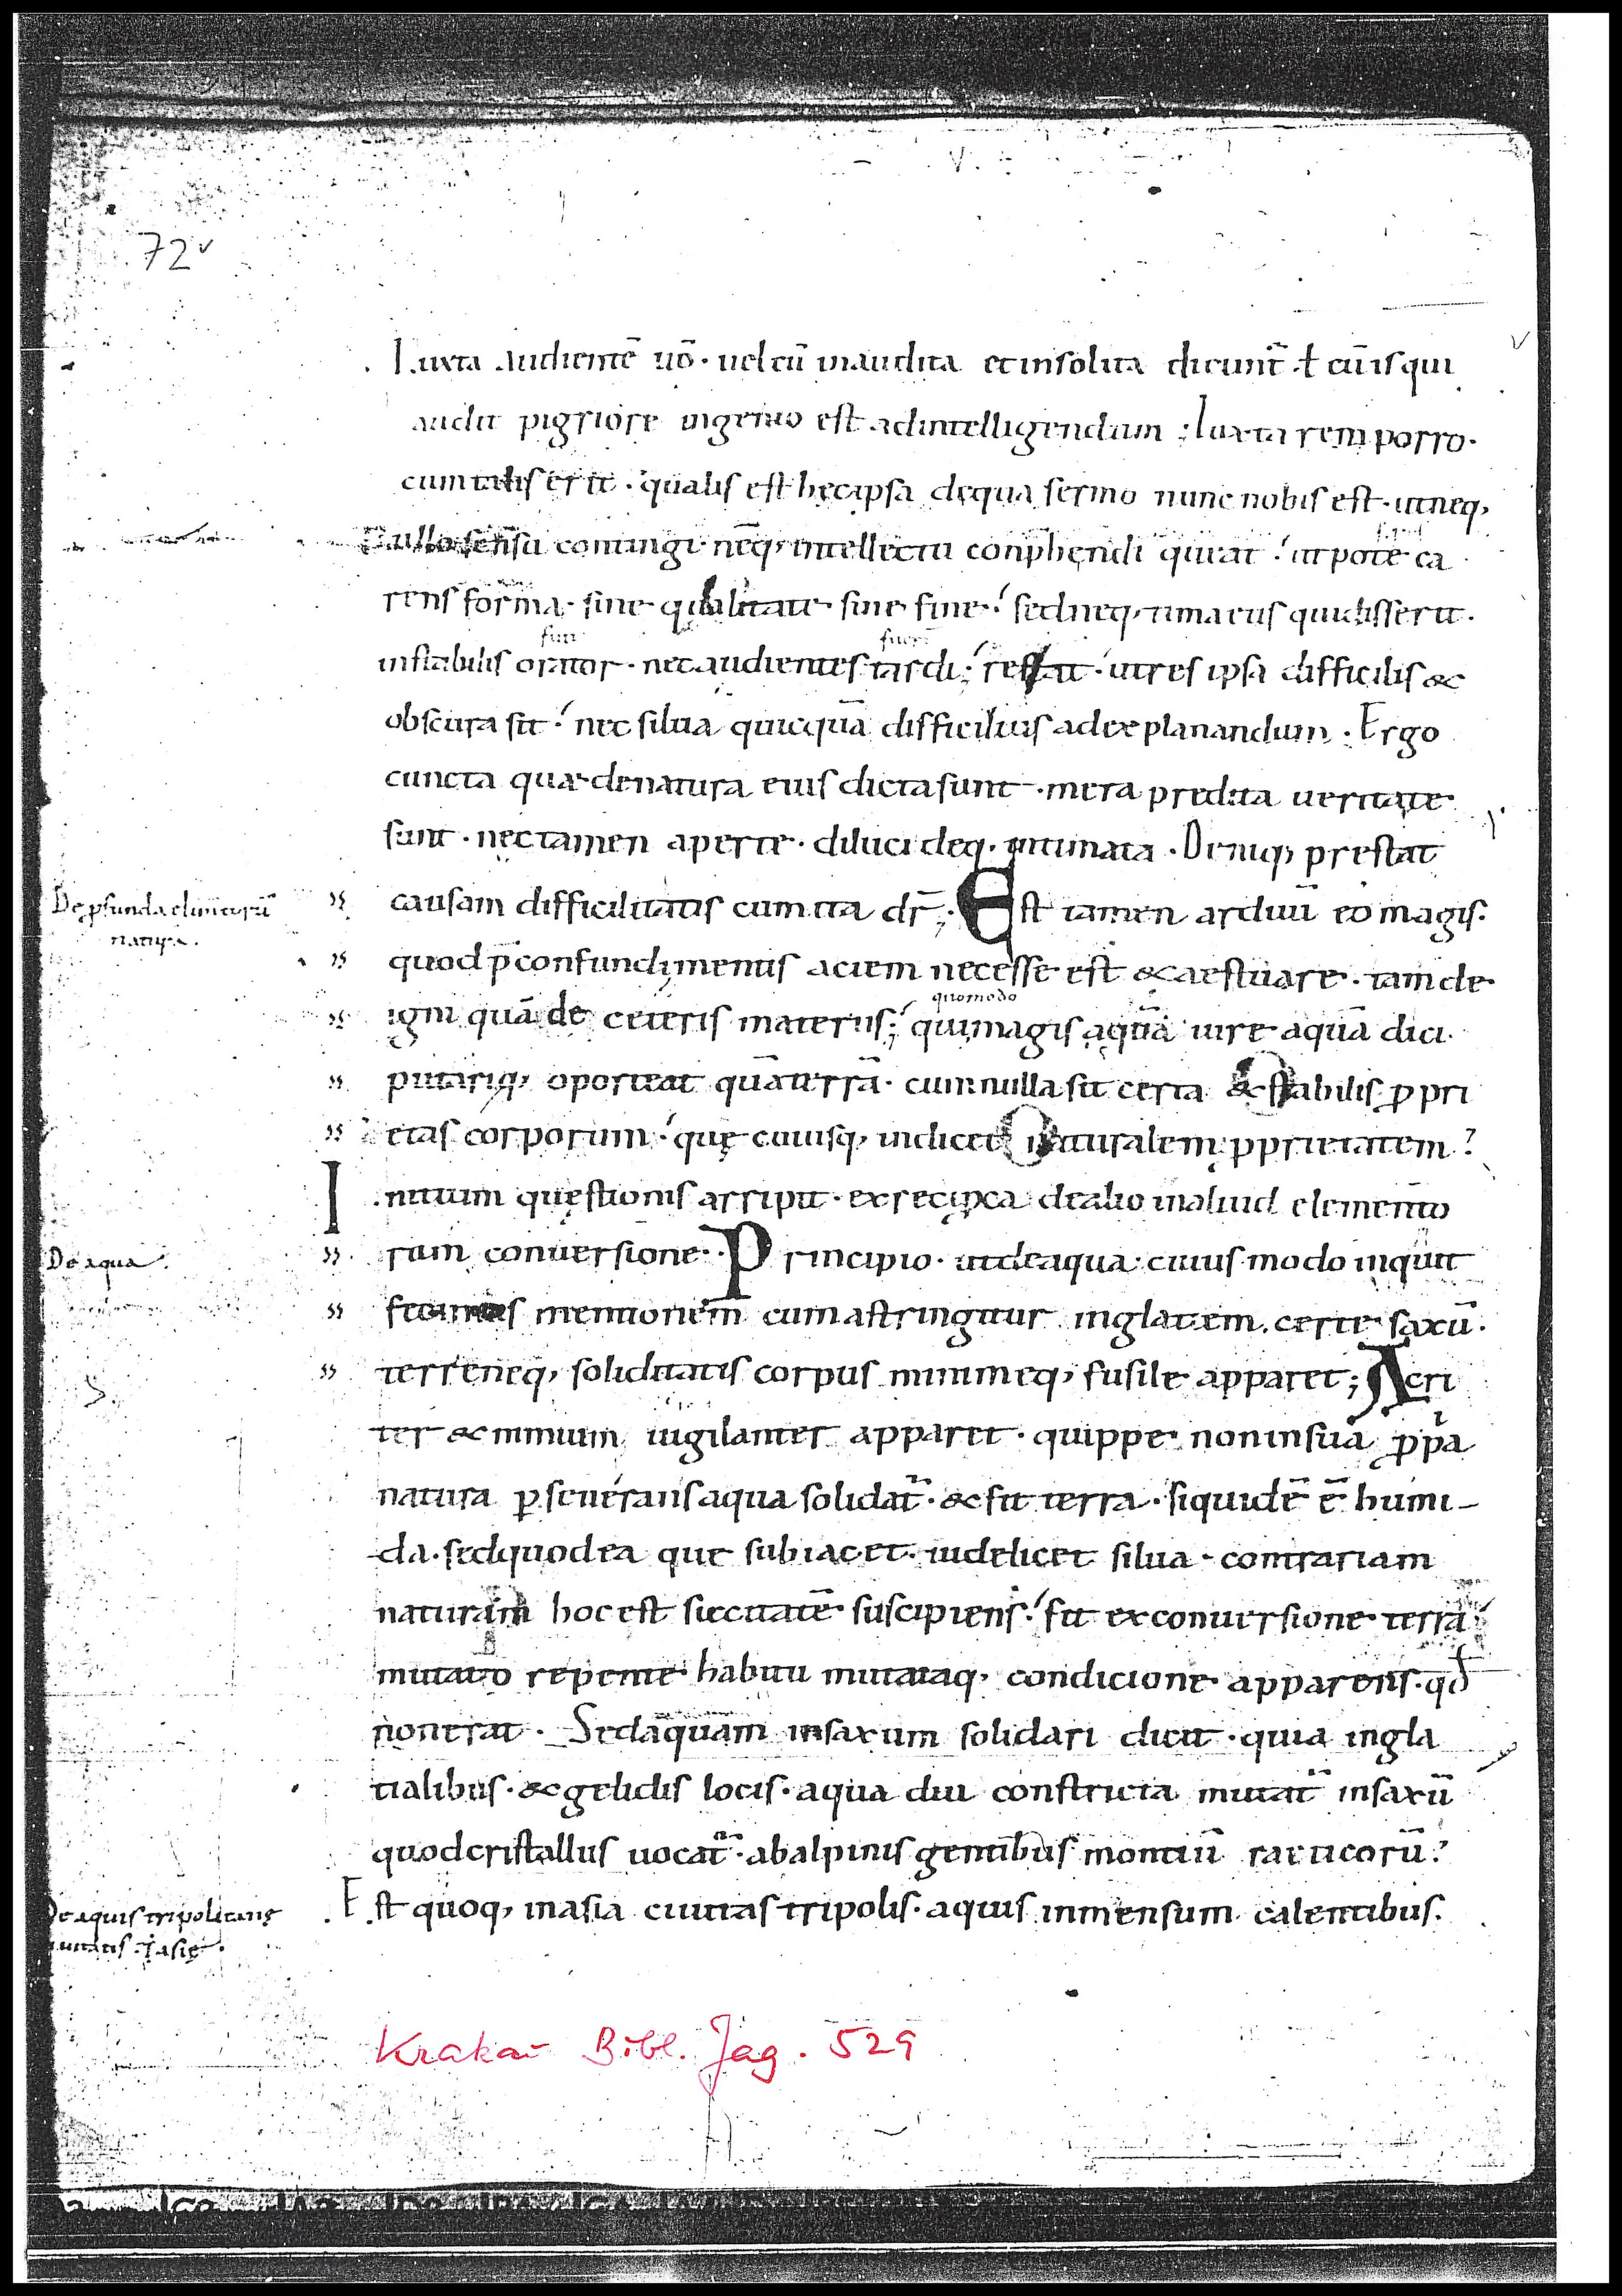 72v
Iuxta audientē uō· uel cū inaudita et insolita dicunt̄ ł cū is qui
audit pigriore ingenio est ad intelligendum; Iuxta rem porro·
cum talis erit· qualis est hęc ipsa de qua sermo nunc nobis est· ut neq;
ullo sensu contingi neq; intellectu conp̄hendi queat· ut pote ca
rens forma· sine qualitate· sine fine· sed neq; timaeus qui disserit·
fuit fuer̄
instabilis orator· nec audientes tardi; restat· ut res ipsa difficilis &
obscura sit· nec silua quicquā difficilius ad explanandum· Ergo
cuncta quae de natura eius dicta sunt· mera predita ueritate
sunt· nec tamen aperte· dilucideq· intimata· Deniq; prestat
De ꝓfunda elimtorū
natura·
causam difficultatis cum ita dr̄; Est tamen arduū eo magis·
quod p̄confundi mentis aciem necesse est & aestuare· tam de
quomodo
igni quā de ceteris materiis; qui magis aquā iure aquā dici·
putariq; oporteat quā terrā· cum nulla sit certa & stabilis ꝓpri
etas corporum· quę cuiusq; indicet naturalem ꝓprietatem?
Initium quęstionis arripit· ex reciproca de alio in aliud elemento
De aqua·
rum conuersione· Principio· ut de aqua· cuius modo inquit
fecimus mentionem cum astringitur in glatiem· certe saxū·
terreneq; soliditatis corpus minimeq; fusile apparet; Acri
ter & nimium uigilanter apparet· quippe non in sua ꝓpa
natura ꝑseuerans aqua solidat̄· & fit terra· siquidē ē humi-
da· sed quod ea que subiacet· uidelicet silua· contrariam
naturam hoc est siccitatē suscipiens· fit ex conuersione terra
mutato repente habitu mutataq; condicione apparens· qđ
non erat· Sed aquam in saxum solidari dicit· quia in gla
tialibus· & gelidis locis· aqua diu constricta mutat̄ in saxū
quod cristallus uocat̄· ab alpinis gentibus montiū raeticorū·
De aquis tripolitanę
ciuitatis· ī asię·
Est quoq; in asia ciuitas tripolis· aquis inmensum calentibus·
Krakau Bibl. Jag. 529